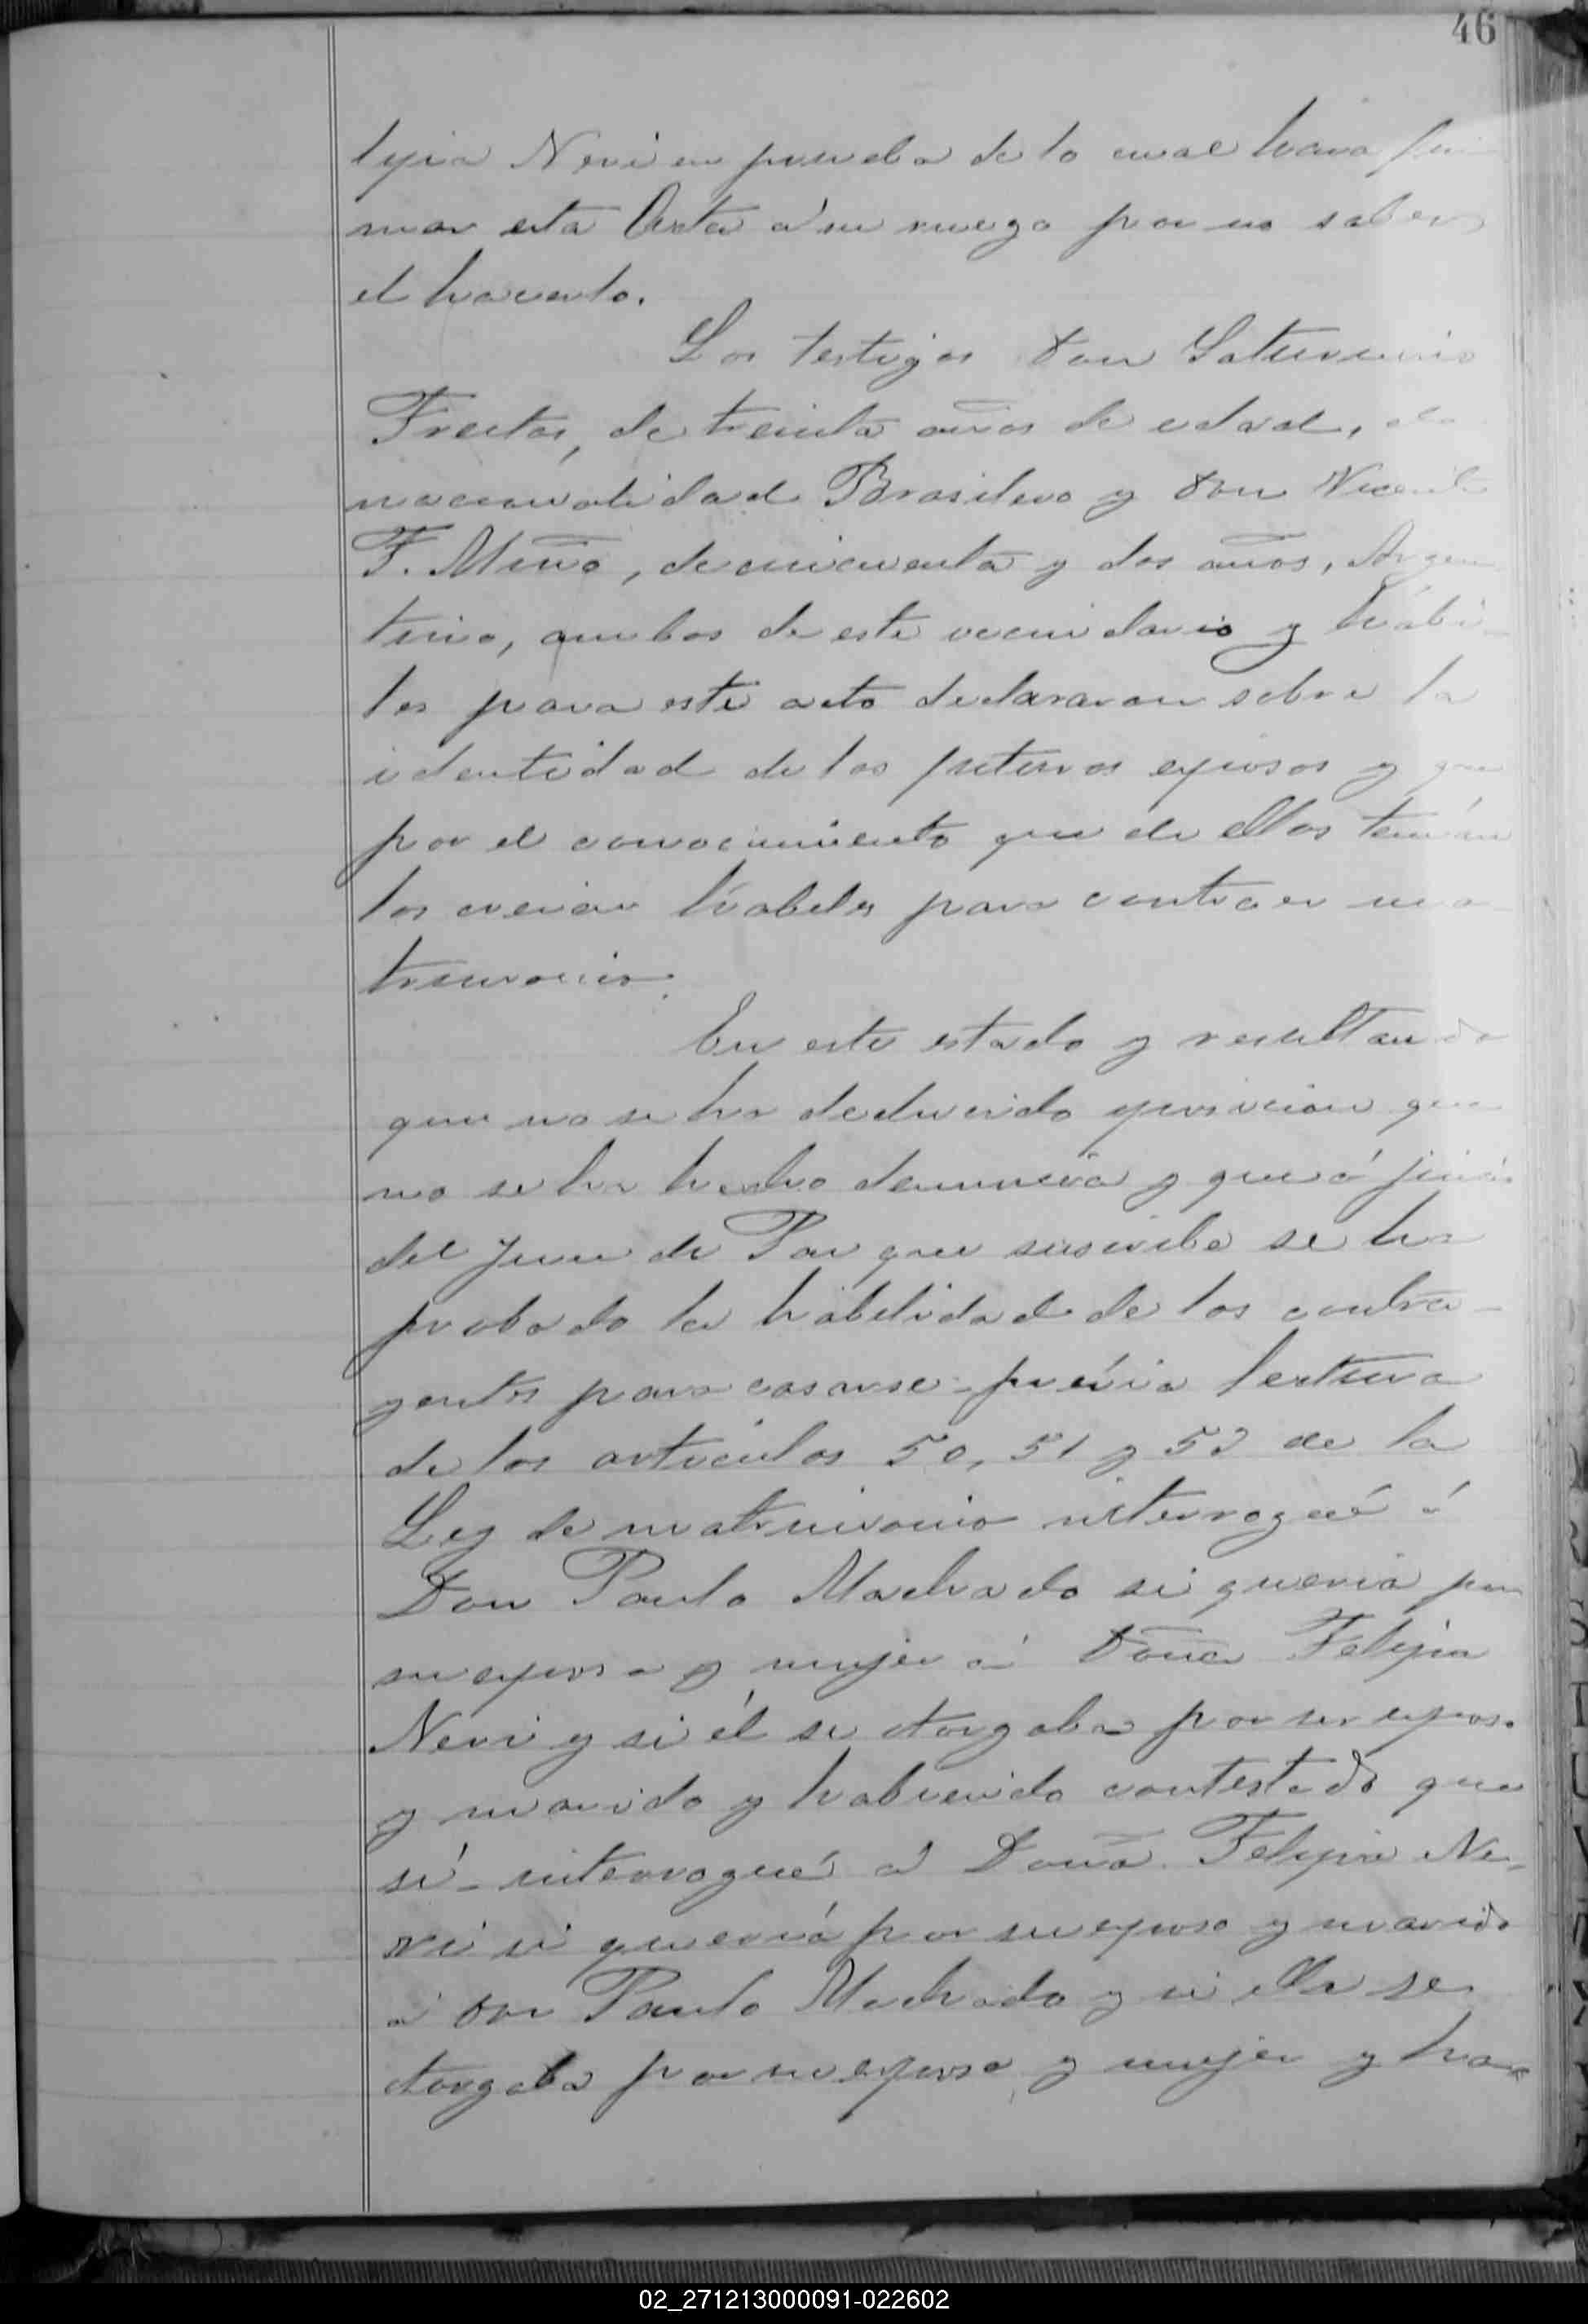 46
lipia Neri en prueba de lo cual hará fir
mar esta Acta á su ruego por no saber
el hacerlo.
Los testigos Don Saturnino
Freitas, de treinta años de edad, de
nacionalidad Brasilero y Don Vicente
F. Miño, de cincuenta y dos años, Argen
tino, ambos de este vecindario y hábi-
les para este acto declararon sobre la
identidad de los futuros esposos y que
por el conocimiento que de ellos tenían
los creían hábiles para contraer ma-
trimonio.
En este estado y resultando
que no se ha deducido oposicion que
no se ha hecho denuncia y que á juicio
del Juez de Paz que suscribe se ha
probado la habilidad de los contra-
yentes para casarse - prévia lectura
de los artículos 50, 51 y 53 de la
Ley de matrimonio interrogué á
Don Paulo Machado si queria por
su esposa y mujer á Doña Felipia
Neri y si él se otorgaba por su esposo
y marido y habiendo contestado que
sí - interrogué á Doña Felipia Ne-
ri si queriá por su esposo y marido
á Don Paulo Machado y si ella se
otorgaba por su esposa y mujer y ha-
02_271213000091-022602